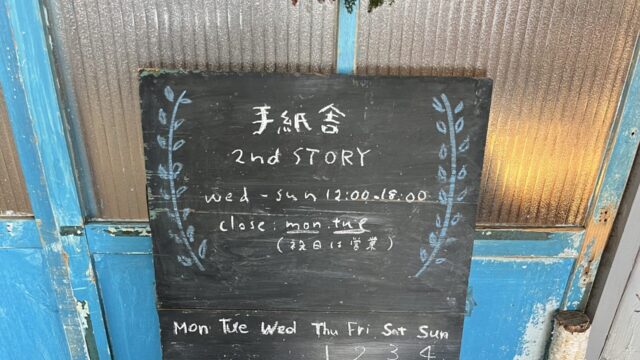 手紙舎
2nd STORY
wed - sun 12:00-18:00
close: mon.tue
(祝日は営業)
Mon Tue Wed Thu Fri Sat Sun
1 2 3 4